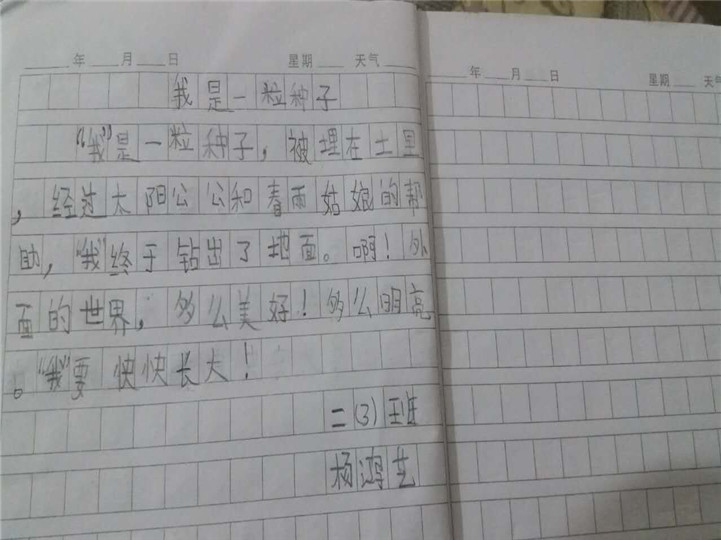 年 月 日 星期 天气
我是一粒种子
“我”是一粒种子，被埋在土里
，经过太阳公公和春雨姑娘的帮
助，“我”终于钻出了地面。啊！外
面的世界，多么美好！多么明亮
。“我”要快快长大！
二（3）班
杨鸿艺
年 月 日 星期 天气